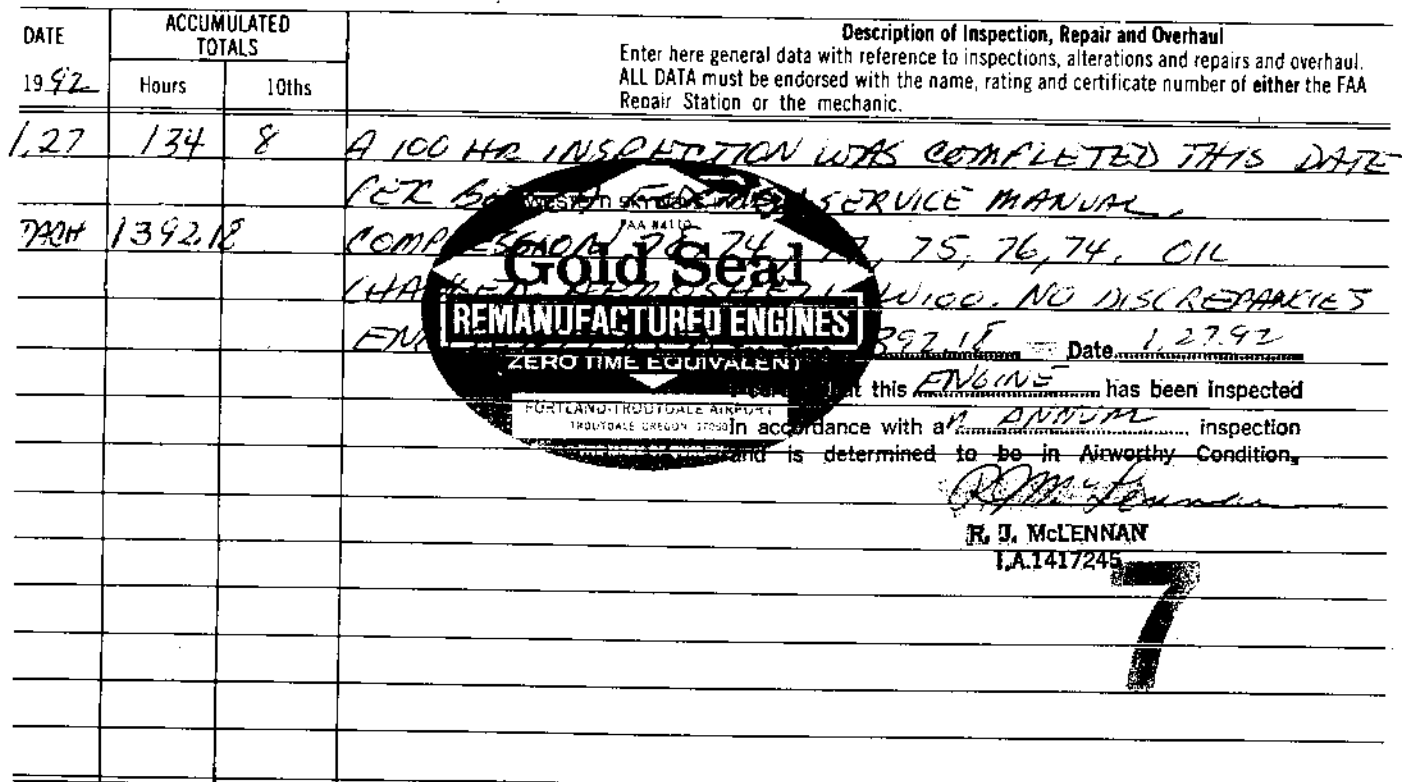 DATE
ACCUMULATED TOTALS
Description of Inspection, Repair and Overhaul
Enter here general data with reference to inspections, alterations and repairs and overhaul.
1992 Hours 10ths
ALL DATA must be endorsed with the name, rating and certificate number of either the FAA
Repair Station or the mechanic.
1,27 134 8 A 100 HR INSPECTION WAS COMPLETED THIS DATE
PER SERVICE MANUAL.
TACH 1392.18 COMPRESSION 74, 75, 76, 74. OIL
W100. NO DISCREPANCIES
WESTERN SKYWAYS
Gold Seal
REMANUFACTURED ENGINES
ZERO TIME EQUIVALENT
PORTLAND-TROUTDALE AIRPORT
TROUTDALE OREGON
Date 1,27.92
that this ENGINE has been inspected
In accordance with an ANNUAL inspection
and is determined to be in Airworthy Condition.
R. J. McLENNAN
I.A.1417245
7